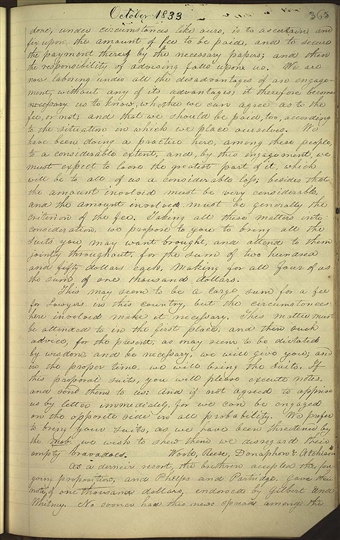 October 1833
363
done, under circumstances like ours, is to ascertain and
fix upon the amount of fee to be paid, and to secure
the payment thereof by the necessary papers; and then
the responsibility of advising falls upon us. We are
now laboring under all the disadvantages of an engage-
ment, without any of its advantages; it therefore becomes
necessary us to know, whether we can agree as to the
fee, or not; and that we should be paid, too, according
to the situation in which we place ourselves. We
have been doing a practice here, among these people,
to a considerable extent, and by this engagement, we
must expect to loose the greatest part of it, which
will be to all of us a considerable loss; besides that
the amount involved must be very considerable,
and the amount involved must be generally the
criterion of the fee. Taking all these matters into
consideration, we propose to you to bring all the
suits you may want brought, and attend to them
jointly throughout, for the sum of two hundred
and fifty dollars each, making for all four of us
the sum of one thousand dollars.
This may seem to be a large sum for a fee
for lawyers in this country, but the circumstances
here involved make it necessary. This matter must
be attended to in the first place, and then such
advice, for the present, as may seem to be dictated
by wisdom and be necessary, we will give you; and
in the proper time we will bring the suits. If
this proposal suits, you will please execute notes,
and send them to us; and if not agreed to apprise
us by letter immediately, for we can be engaged
on the opposite side in all probability. We prefer
to bring your suits, as we have been threatened by
the mob, we wish to shew them we disregard their
empty bravadoes. Wood, Reese, Doniphan & Atchison
As a dernier resort, the brethren accepted the fore
going proposition, and Phelps and Partridge, gave their
note of one thousand dollars, endorsed by Gilbert and
Whitney. No sooner had this news spread among the